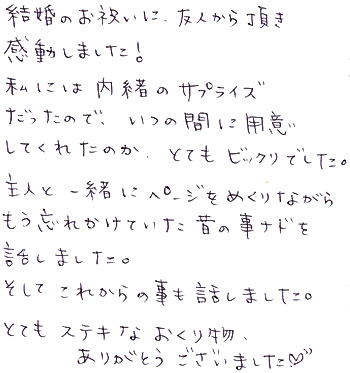 結婚のお祝いに、友人から頂き
感動しました!
私には内緒のサプライズ
だったので、いつの間に用意
してくれたのか、とてもビックリでした。
主人と一緒にページをめくりながら
もう忘れかけていた昔の事ナドを
話しました。
そしてこれからの事も話しました。
とてもステキなおくり物、
ありがとうございました♡"